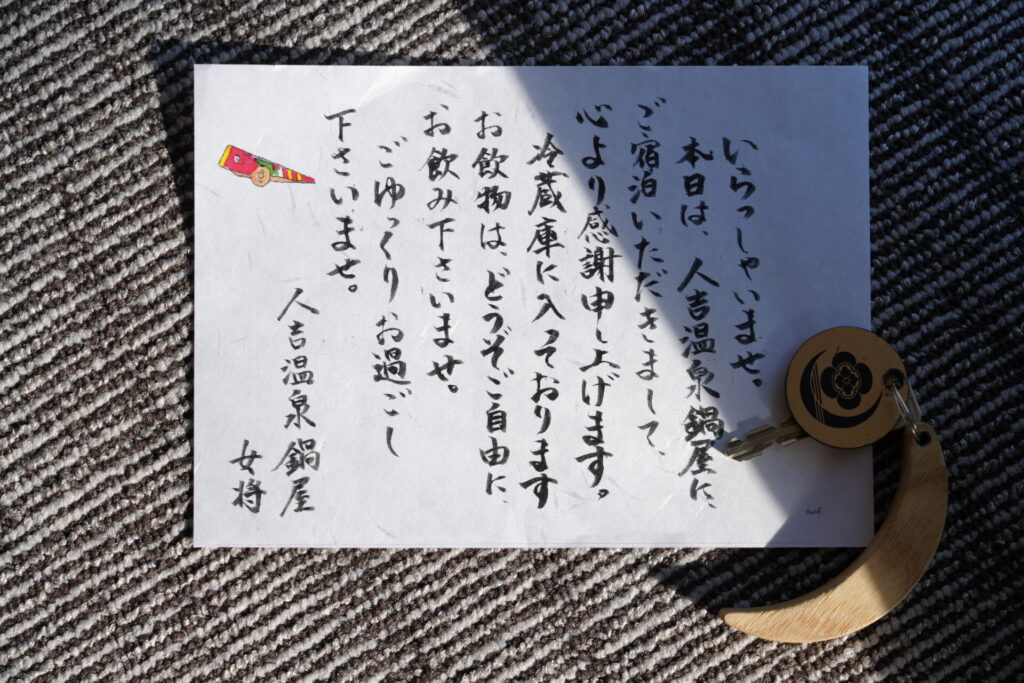 いらっしゃいませ。
本日は、人吉温泉鍋屋に、
ご宿泊いただきまして、
心より感謝申し上げます。
冷蔵庫に入っております
お飲物は、どうぞご自由に、
お飲み下さいませ。
ごゆっくりお過ごし
下さいませ。
人吉温泉鍋屋
女将